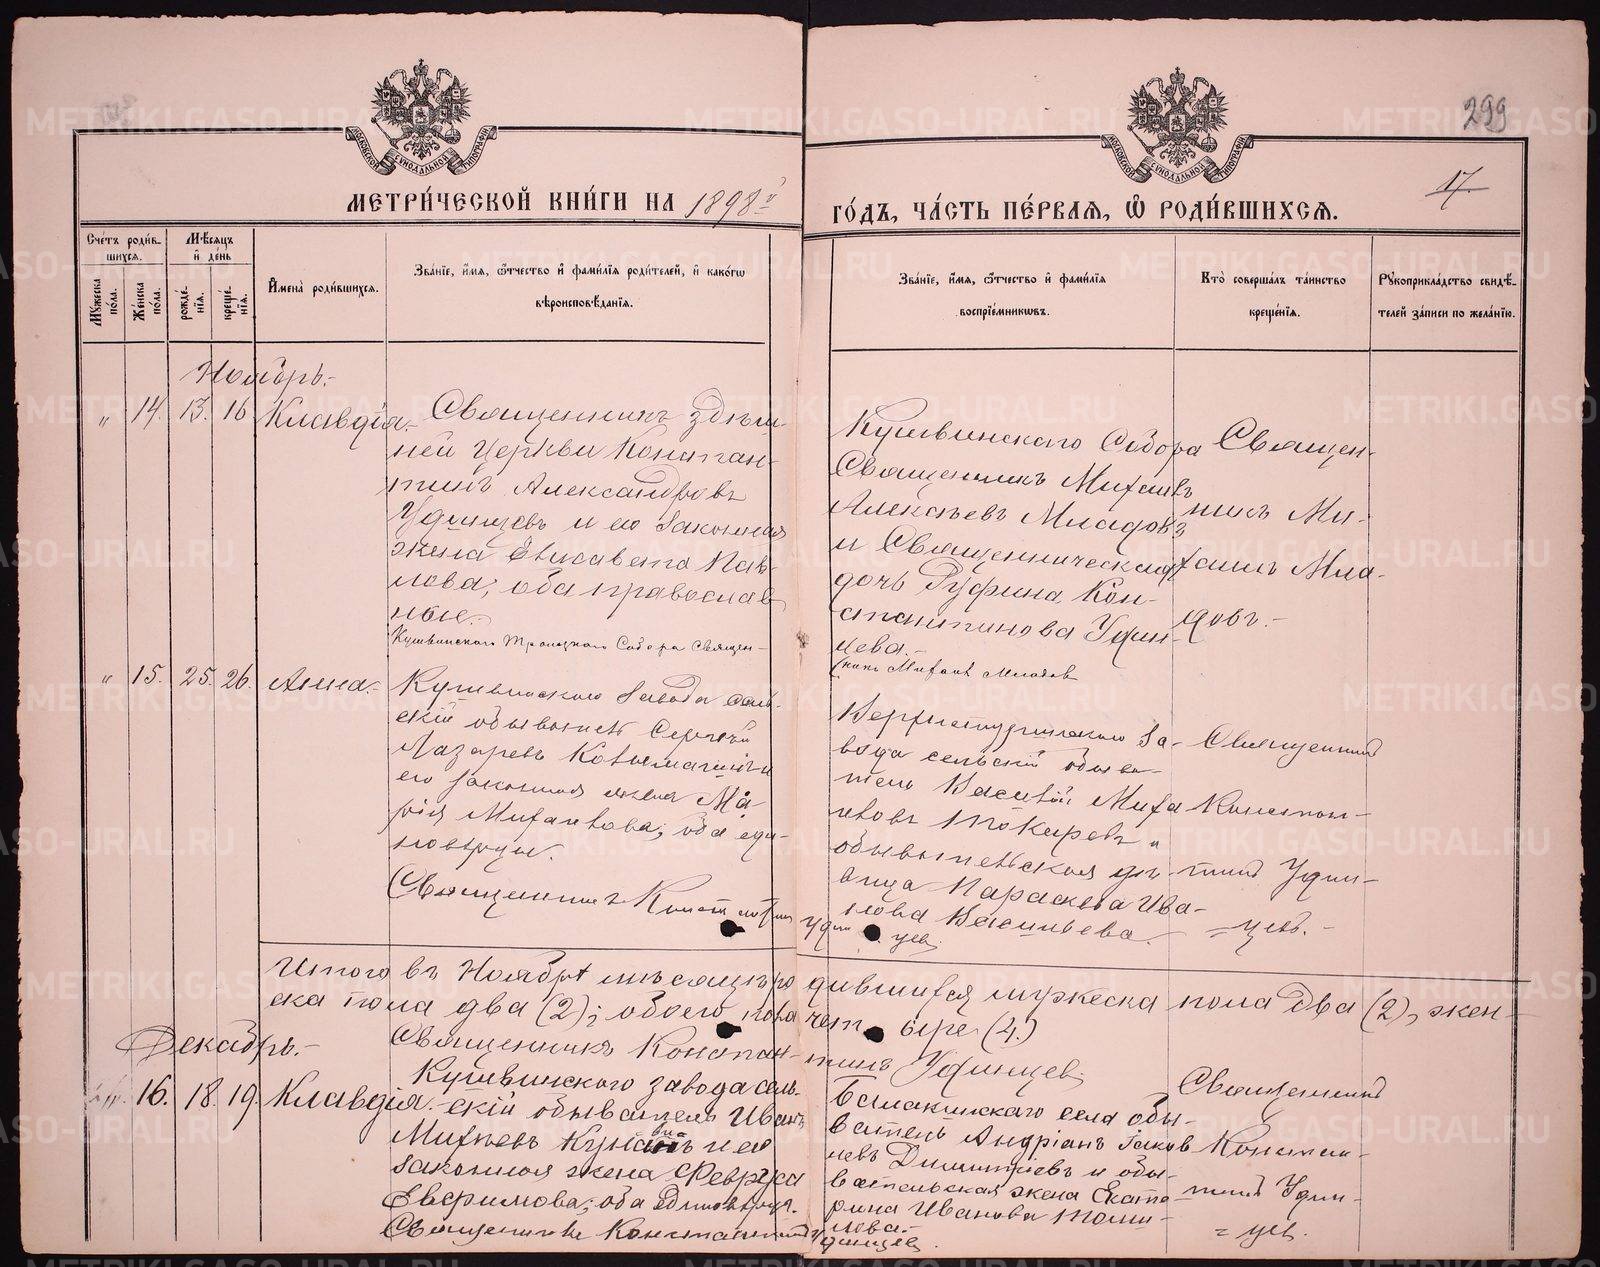 299
17
МЕТРИ́ЧЕСКОЙ КНИ́ГИ НА 1898й
ГО́ДЪ, ЧА́СТЬ ПЕ́РВАЯ, Ѿ РОДИ́ВШИХСЯ.
Сче́тъ роди́в-
шихся.
Мѣ́сяцъ
и̑ де́нь
Мꙋжеска
по́ла.
Же́нска
по́ла.
рожде́-
нїя.
креще́-
нїя.
И̑мена̀ роди́вшихся.
Зва́нїе, и̑́мя, ѻ̑́тчество и̑ фами́лїя роди́телей, и̑ како́гѡ
вѣроисповѣ́данїя.
Зва́нїе, и̑́мя, ѻ̑́тчество и̑ фами́лїя
воспрїе́мникѡвъ.
Кто̀ соверша́лъ та́инство
креще́нїя.
Рꙋкоприкла́дство свидѣ́-
телей за́писи по жела́нїю.
Ноябрь.-
" 14. 13. 16. Клавдія.- Священникъ здѣш-
ней Церкви Констан-
тинъ Александровъ
Удинцевъ и его законная
жена Елисавета Пав-
лова; оба православ-
ные.-
Кушвинскаго Троицкаго Собора Священ-
никъ Михаилъ Младовъ
Кушвинскаго Собора
Священникъ Михаилъ
Алексѣевъ Младовъ
и Священническая
дочь Руфина Кон-
стантинова Удин-
цева.-
Священ-
никъ Ми-
хаилъ Мла-
довъ.-
" 15. 25. 26. Анна.- Кушвинскаго завода сель-
скій обыватель Сергѣй
Лазаревъ и
его законная жена Ма-
рія Михайлова; оба еди-
новѣрцы.
Священникъ Константинъ Удинцевъ
Верхнетуринскаго За-
вода сельскій обыва-
тель Василій Миха-
йловъ Токаревъ и
обывательская дѣ-
вица Параскева Ива-
нова Васильева.-
Священникъ
Констан-
тинъ Удин-
=цевъ.-
Итого въ Ноябрѣ мѣсяцѣ родившихся мужеска пола два (2), жен-
ска пола два (2); обоего пола четыре (4.)
Священникъ Константинъ Удинцевъ
Декабрь.-
" 16. 18. 19. Клавдія.- Кушвинскаго завода сель-
скій обыватель Иванъ
и его
законная жена Февруса
Евфимова; оба единовѣрцы.
Священникъ Константинъ Удинцевъ.
Балакинскаго села обы-
ватель Андріанъ Іаков-
левъ Димитріевъ и обы-
вательская жена Екате-
рина Иванова
Священникъ
Констан-
тинъ Удин-
=цевъ.
МОСКОВСКОЙ СѴНОДАЛЬНОЙ ТИПОГРАФІИ
МОСКОВСКОЙ СѴНОДАЛЬНОЙ ТИПОГРАФІИ
METRIKI.GASO-URAL.RU